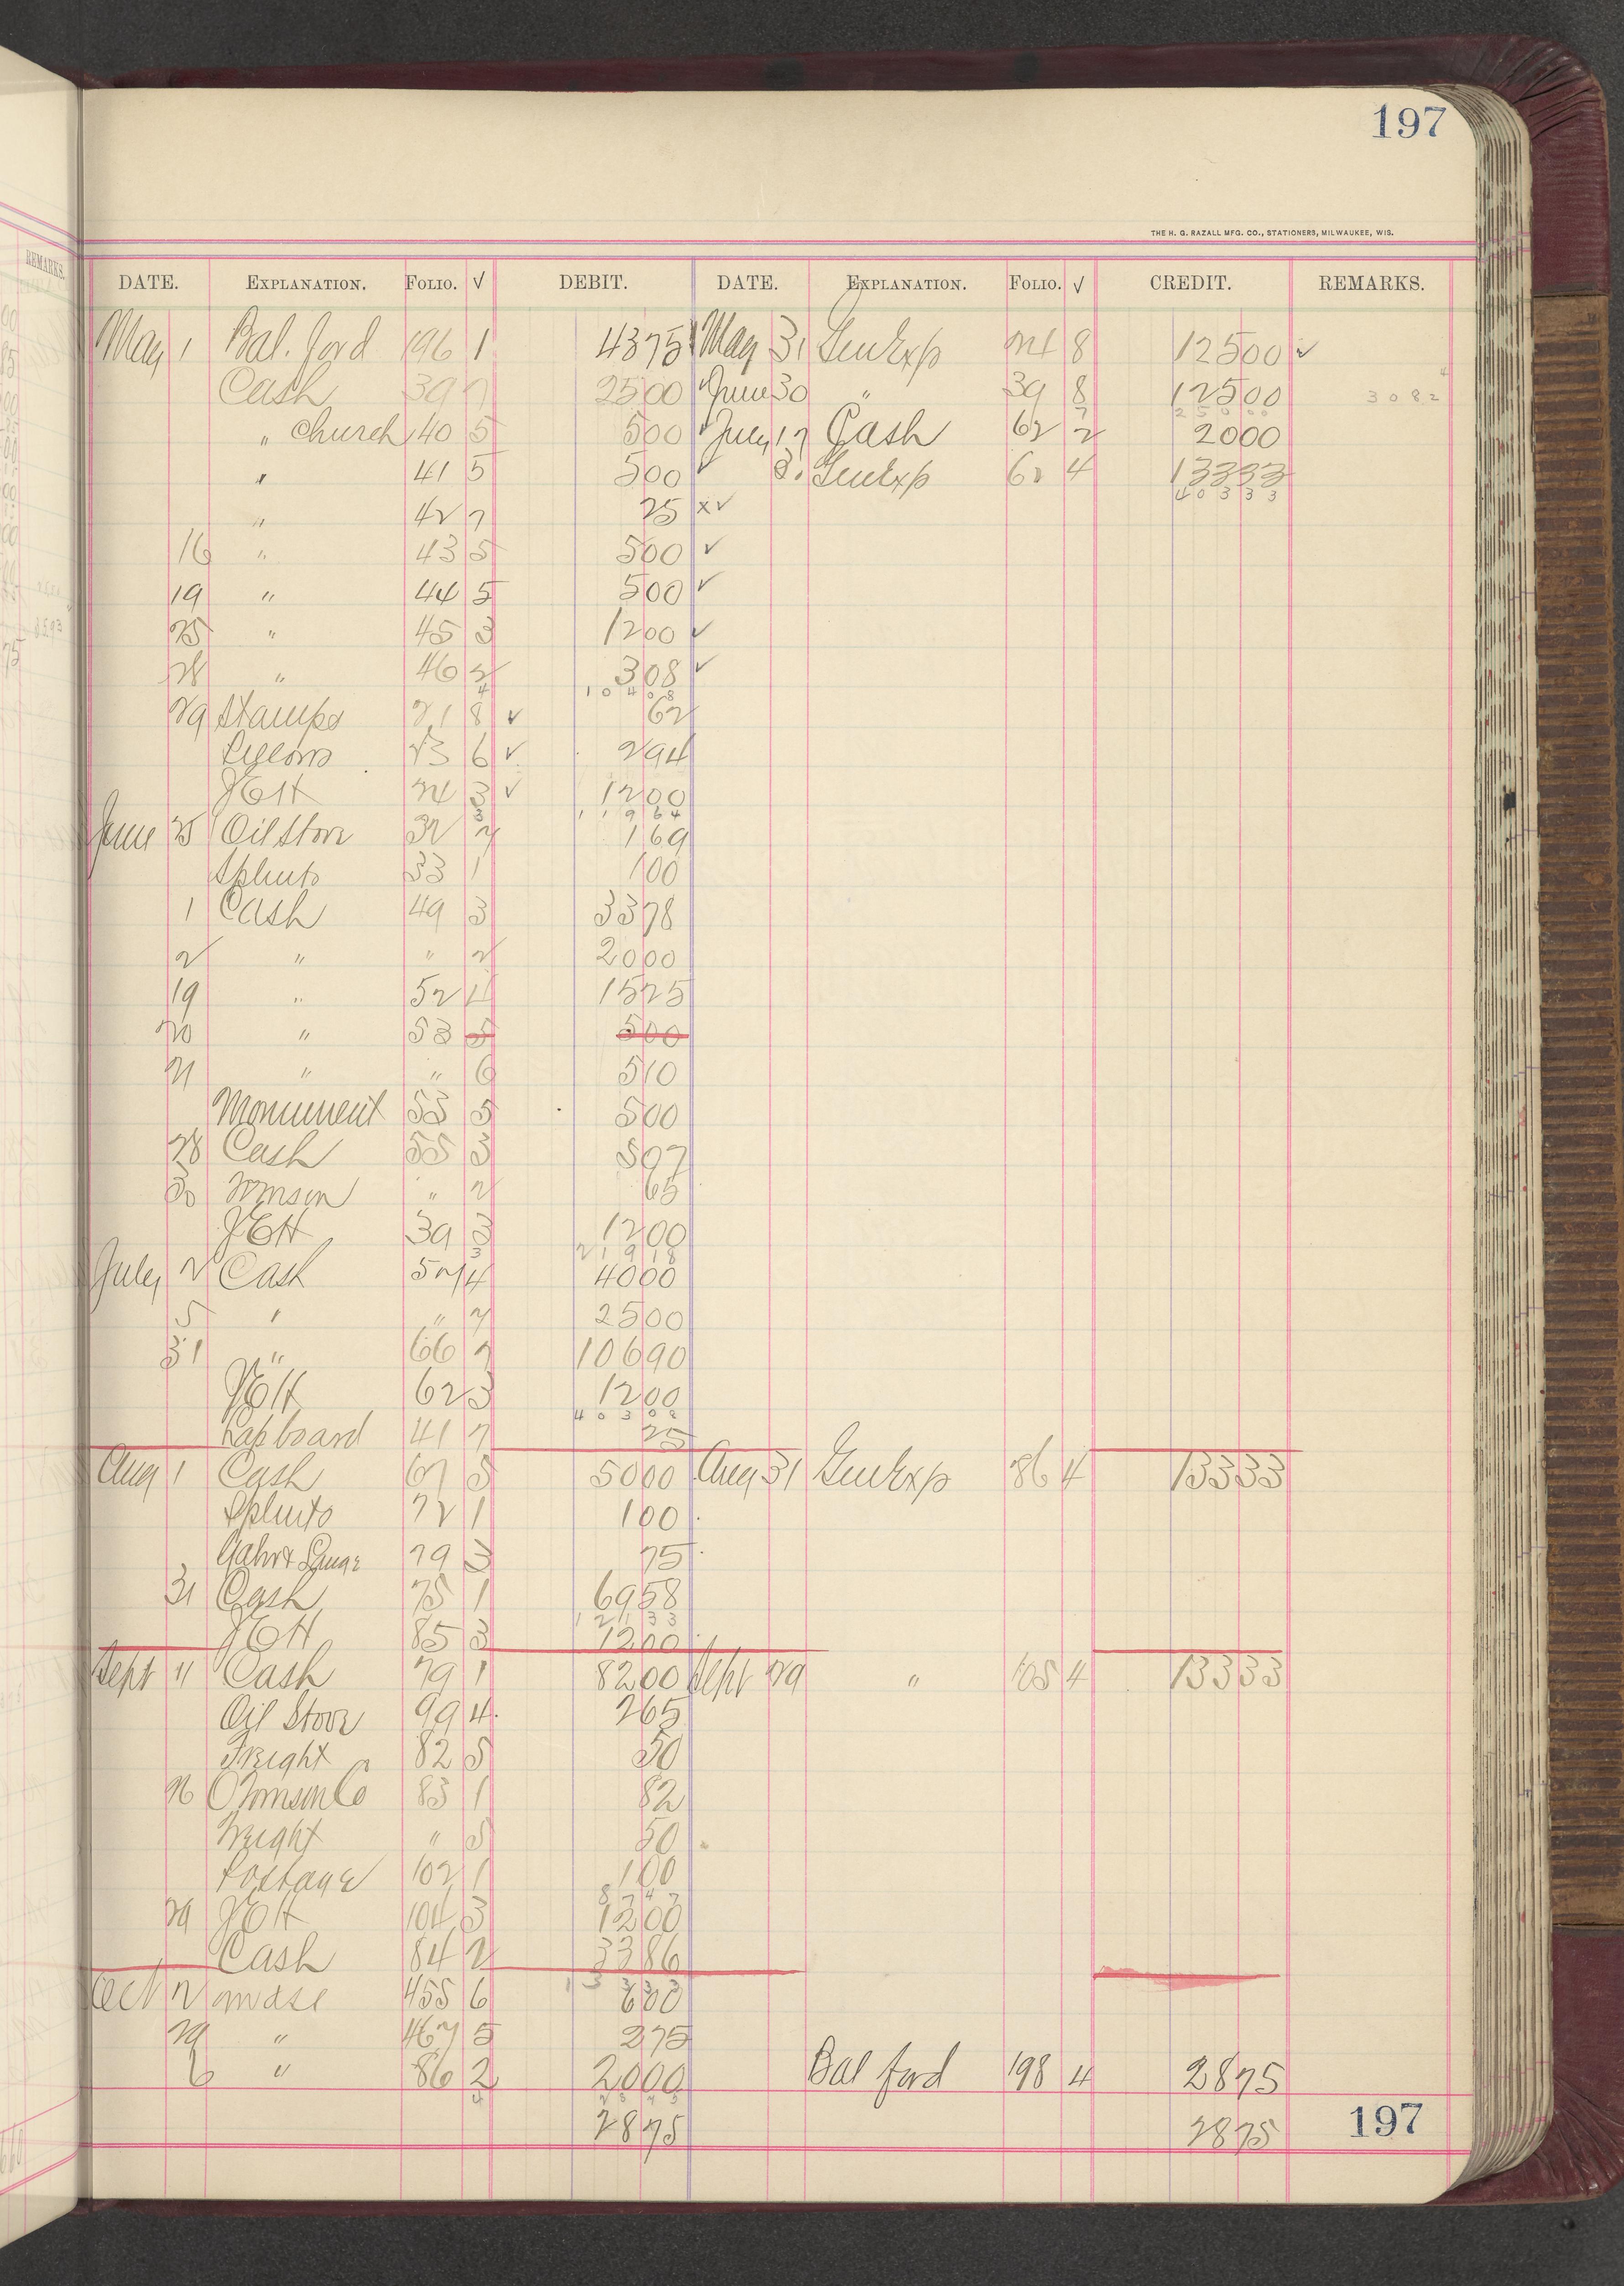 197
THE H. G. RAZALL MFG. CO., STATIONERS, MILWAUKEE, WIS.
REMARKS.
DATE. EXPLANATION. FOLIO. √ DEBIT. DATE. EXPLANATION. FOLIO. √ CREDIT. REMARKS.
May 1 Bal. ford 196 1 4375 May 31 GenExp 24 8 12500 ✓
Cash 39 7 2500 ✓ June 30 " 39 8 12500 3082
25000
" Church 40 5 500 ✓ July 17 Cash 62 2 2000
" 41 5 500 ✓ 31 GenExp 62 4 13333
40333
" 42 7 25 x✓
16 " 43 5 500 ✓
19 " 44 5 500 ✓
25 " 45 3 1200 ✓
28 " 46 2 308 ✓
10408
29 Stamps 21 8 ✓ 62
23 6 ✓ 294
JEH 24 3 ✓ 1200
11964
June 25 Oil Stove 32 7 169
33 1 100
1 Cash 49 3 3378
2 " " 2 2000
19 " 52 4 1525
20 " 53 5 500
21 " " 6 510
Monument 53 5 500
28 Cash 55 3 597
30 " 2 65
JEH 39 3 1200
21918
July 2 Cash 57 4 4000
5 " " 7 2500
31 " 66 7 10690
JEH 62 3 1200
40302
Lapboard 41 7 25
Aug 1 Cash 67 5 5000 Aug 31 GenExp 86 4 13333
72 1 100
79 3 75
31 Cash 75 1 6958
12133
JEH 85 3 1200
Sept 11 Cash 79 1 8200 Sept 29 " 105 4 13333
Oil Stove 99 4 265
Freight 82 5 50
26 83 1 82
Freight " 5 50
Postage 102 1 100
8747
29 JEH 104 3 1200
Cash 84 2 3386
13333
Oct 2 mdse 455 6 600
29 " 467 5 275
6 " 86 2 2000 Bal ford 198 4 2875
2875
2875 2875
197